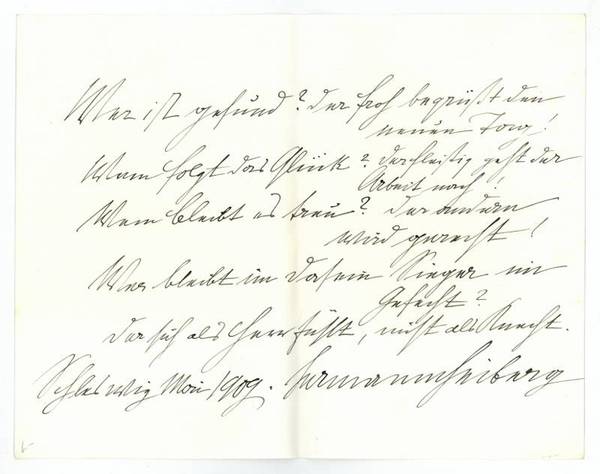 Wer ist gesund? der froh begrüßt den
neuen Tag!
Wem folgt das Glück? der fleißig geht der
Arbeit nach!
Wem bleibt es treu? der andern
wird gerecht!
Wer bleibt im Dasein Sieger im
Gefecht?
der sich als Herr fühlt, nicht als Knecht.
Schleswig Mai 1909. Hermann Heiberg